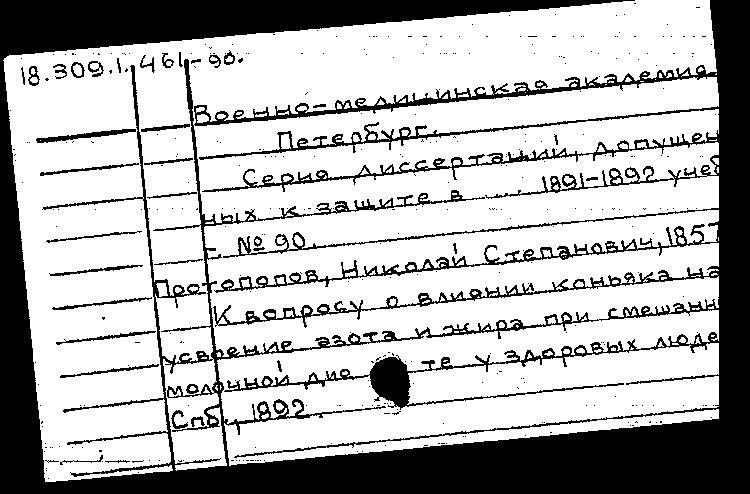 18.309.1.461-90.
Военно-медицинская академия.
Петербург.
Серия диссертаций, допущен
ных к защите в ... 1891-1892 учеб
г. № 90.
Протопопов, Николай Степанович, 1857
К вопросу о влиянии коньяка на
усвоение азота и жира при смешанн
молочной дие те у здоровых люде
Спб., 1892.